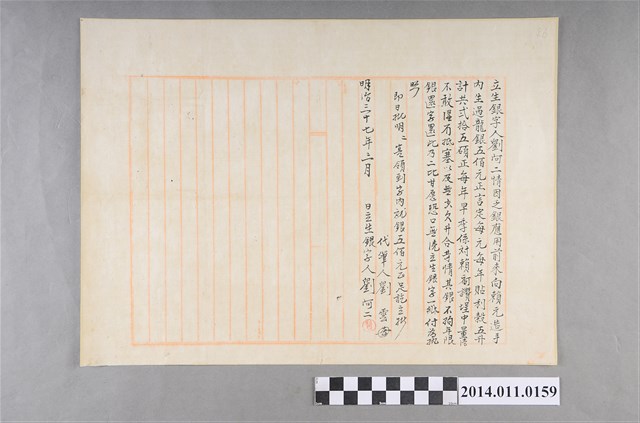 立生銀字人劉阿二情因乏銀應用前來向賴元造手
內生過龍銀五佰元正言定每元每年貼利穀五升
計共弍拾五碩正每年早季係對賴 埕中量清
不敢濕冇抵塞 及 少欠升合等情其銀不拘年限
銀還字還此乃二比甘愿恐口無憑立生銀字一紙付為執
照
即日批明 實領到字內龍銀五佰元正足訖立批
代筆人劉雲
明治三十七年二月 日立生銀字人劉阿二
2014.011.0159